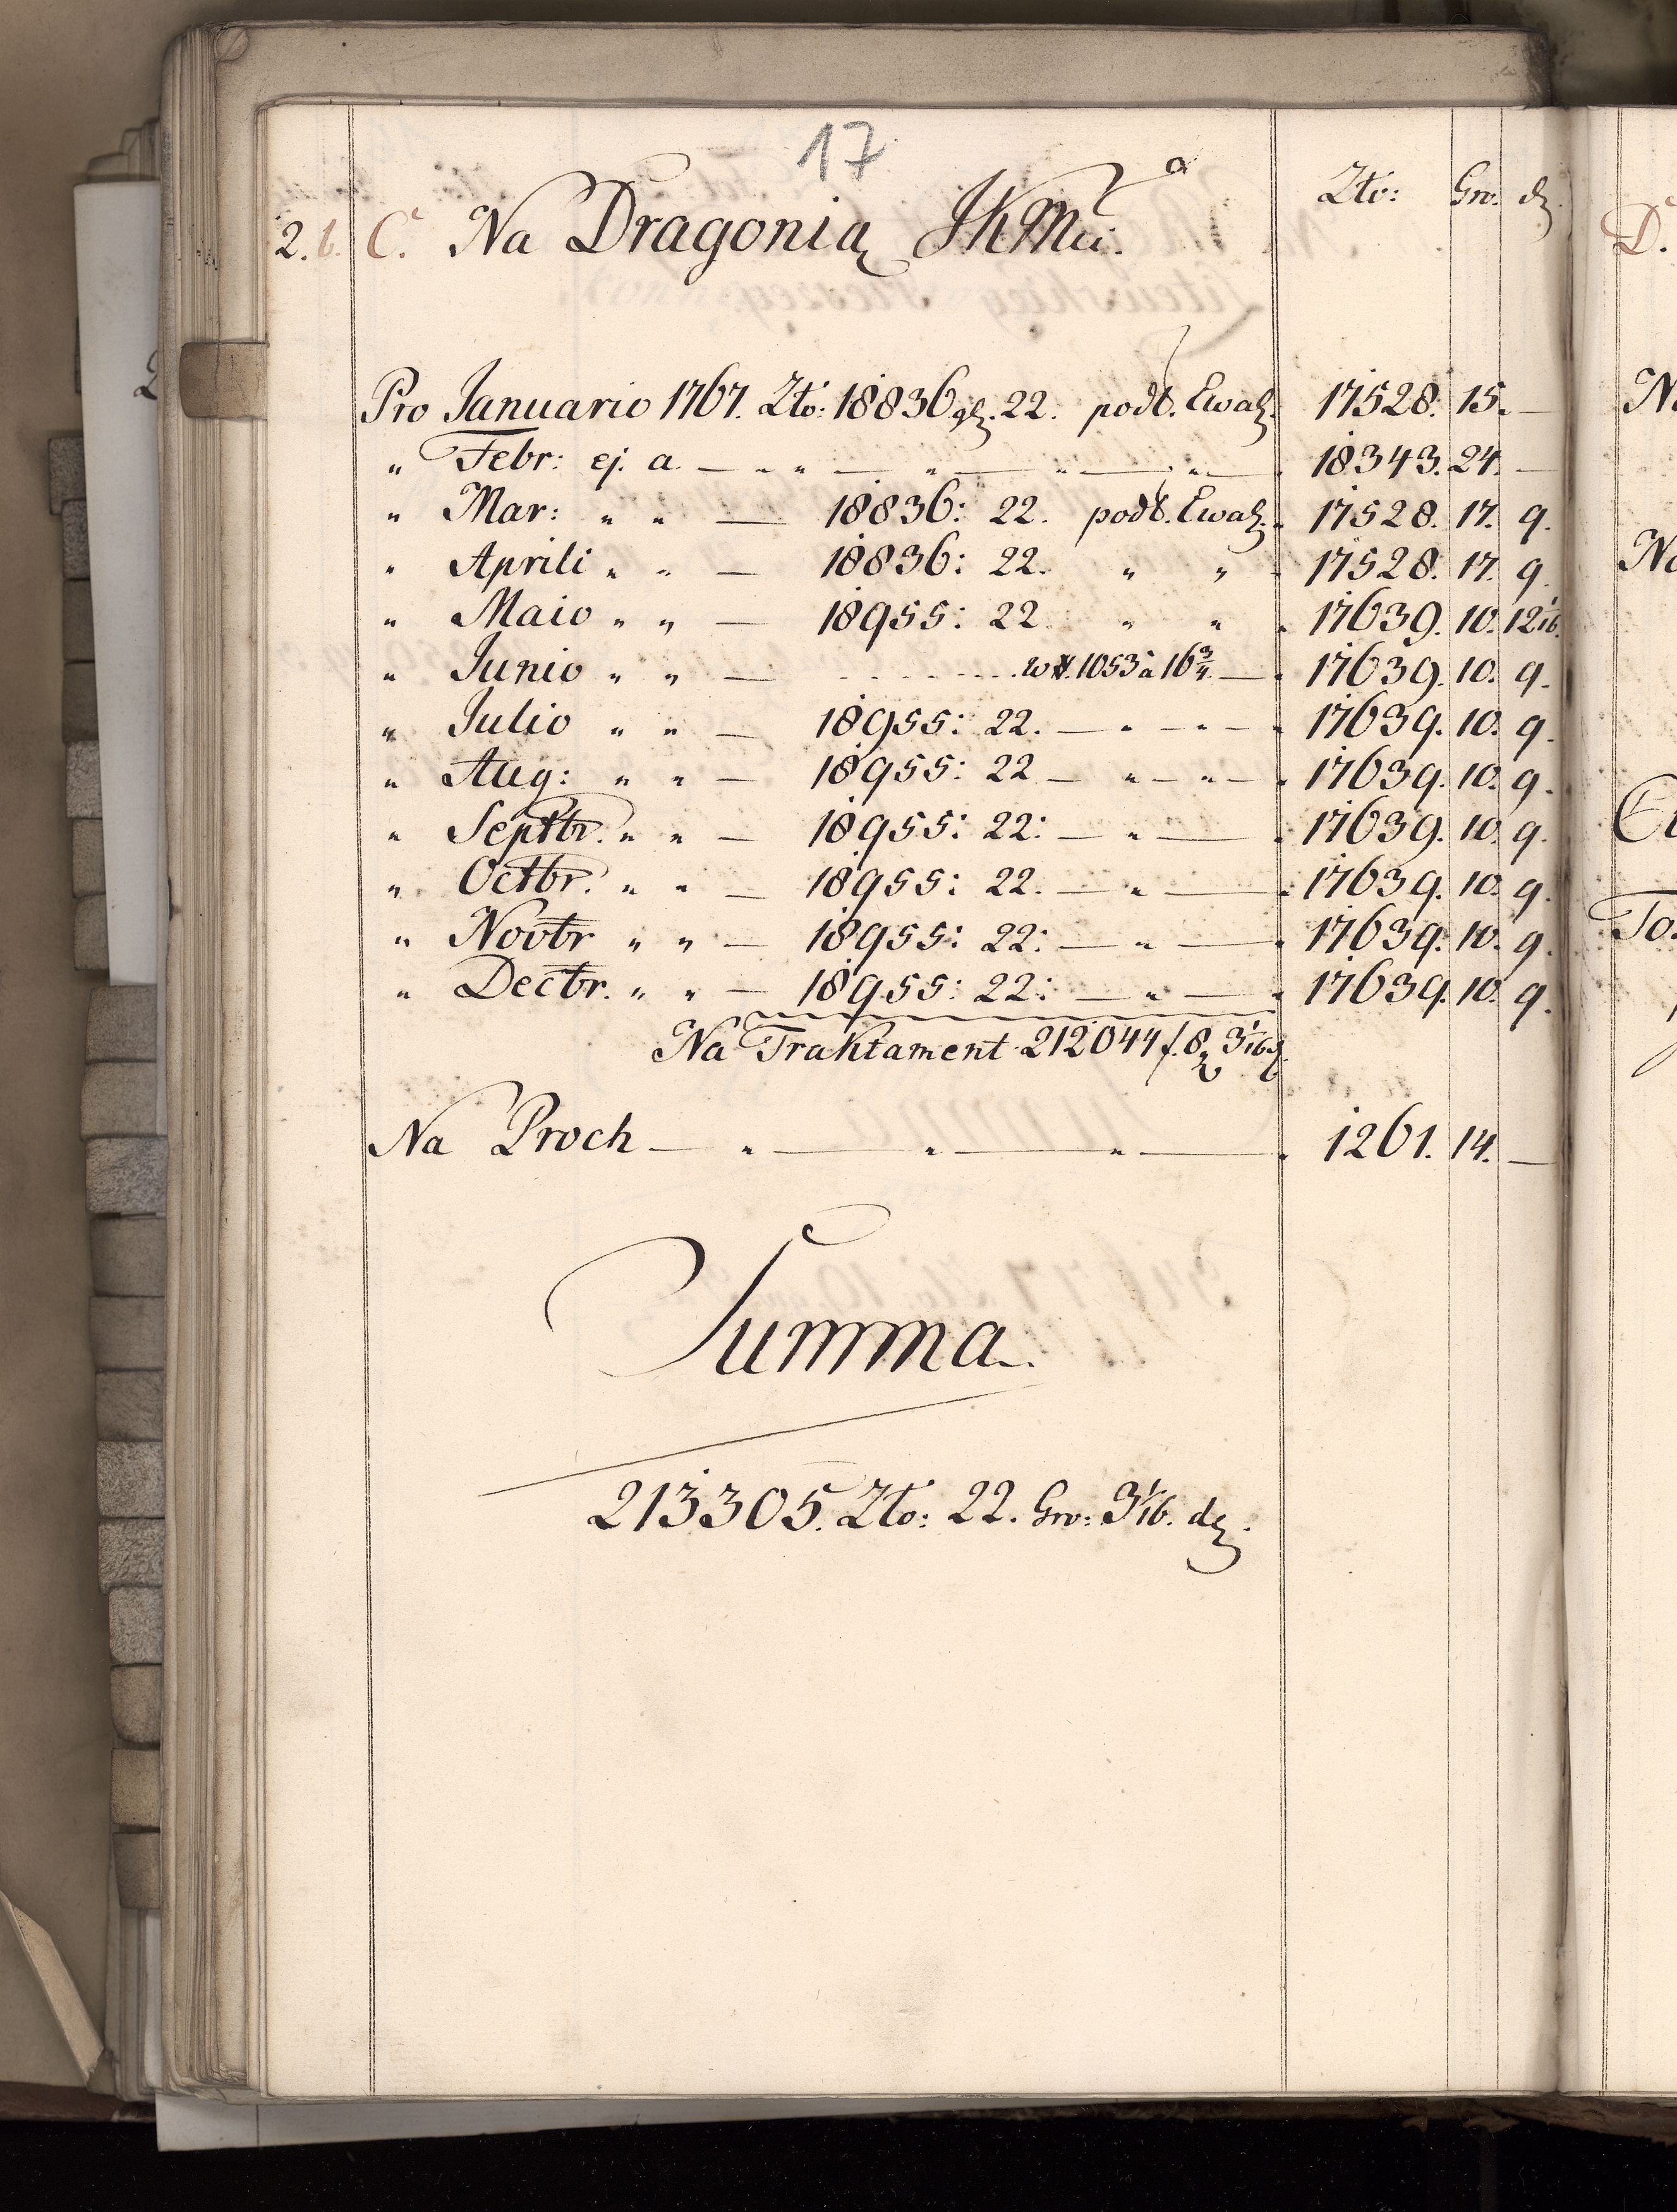 17
Złto: Gro. dz.
2. b. C. Na Dragonią JKMci.
Pro Januario 1767. Złto: 18836 gr. 22. podł. Ewal. 17528. 15. —
" Febr: ej. a. — " " — " — " — " — 18343. 24. —
" Mar: " " — 18836: 22. podł. Ewal. 17528. 17. 9.
" Aprili " " — 18836: 22. " " 17528. 17. 9.
" Maio " " — 18955: 22. " " 17639. 10. 12 1/16.
" Junio " " — . . . . . . . w # 1053 a 16 3/4 — 17639. 10. 9.
" Julio " " — 18955: 22. — " — " — 17639. 10. 9.
" Aug: " " — 18955: 22 — " — " — 17639. 10. 9.
" Septbr. " " — 18955: 22: — " — 17639. 10. 9.
" Octbr. " " — 18955: 22. — " — 17639. 10. 9.
" Novbr " " — 18955: 22: — " — 17639. 10. 9.
" Decbr. " " — 18955: 22: — " — 17639. 10. 9.
Na Traktament 212044 f. 8 3 1/16
Na Proch — " — " — " — 1261. 14. —
Summa.
213305. Złto: 22. Gro: 3 1/16. dz.
D.